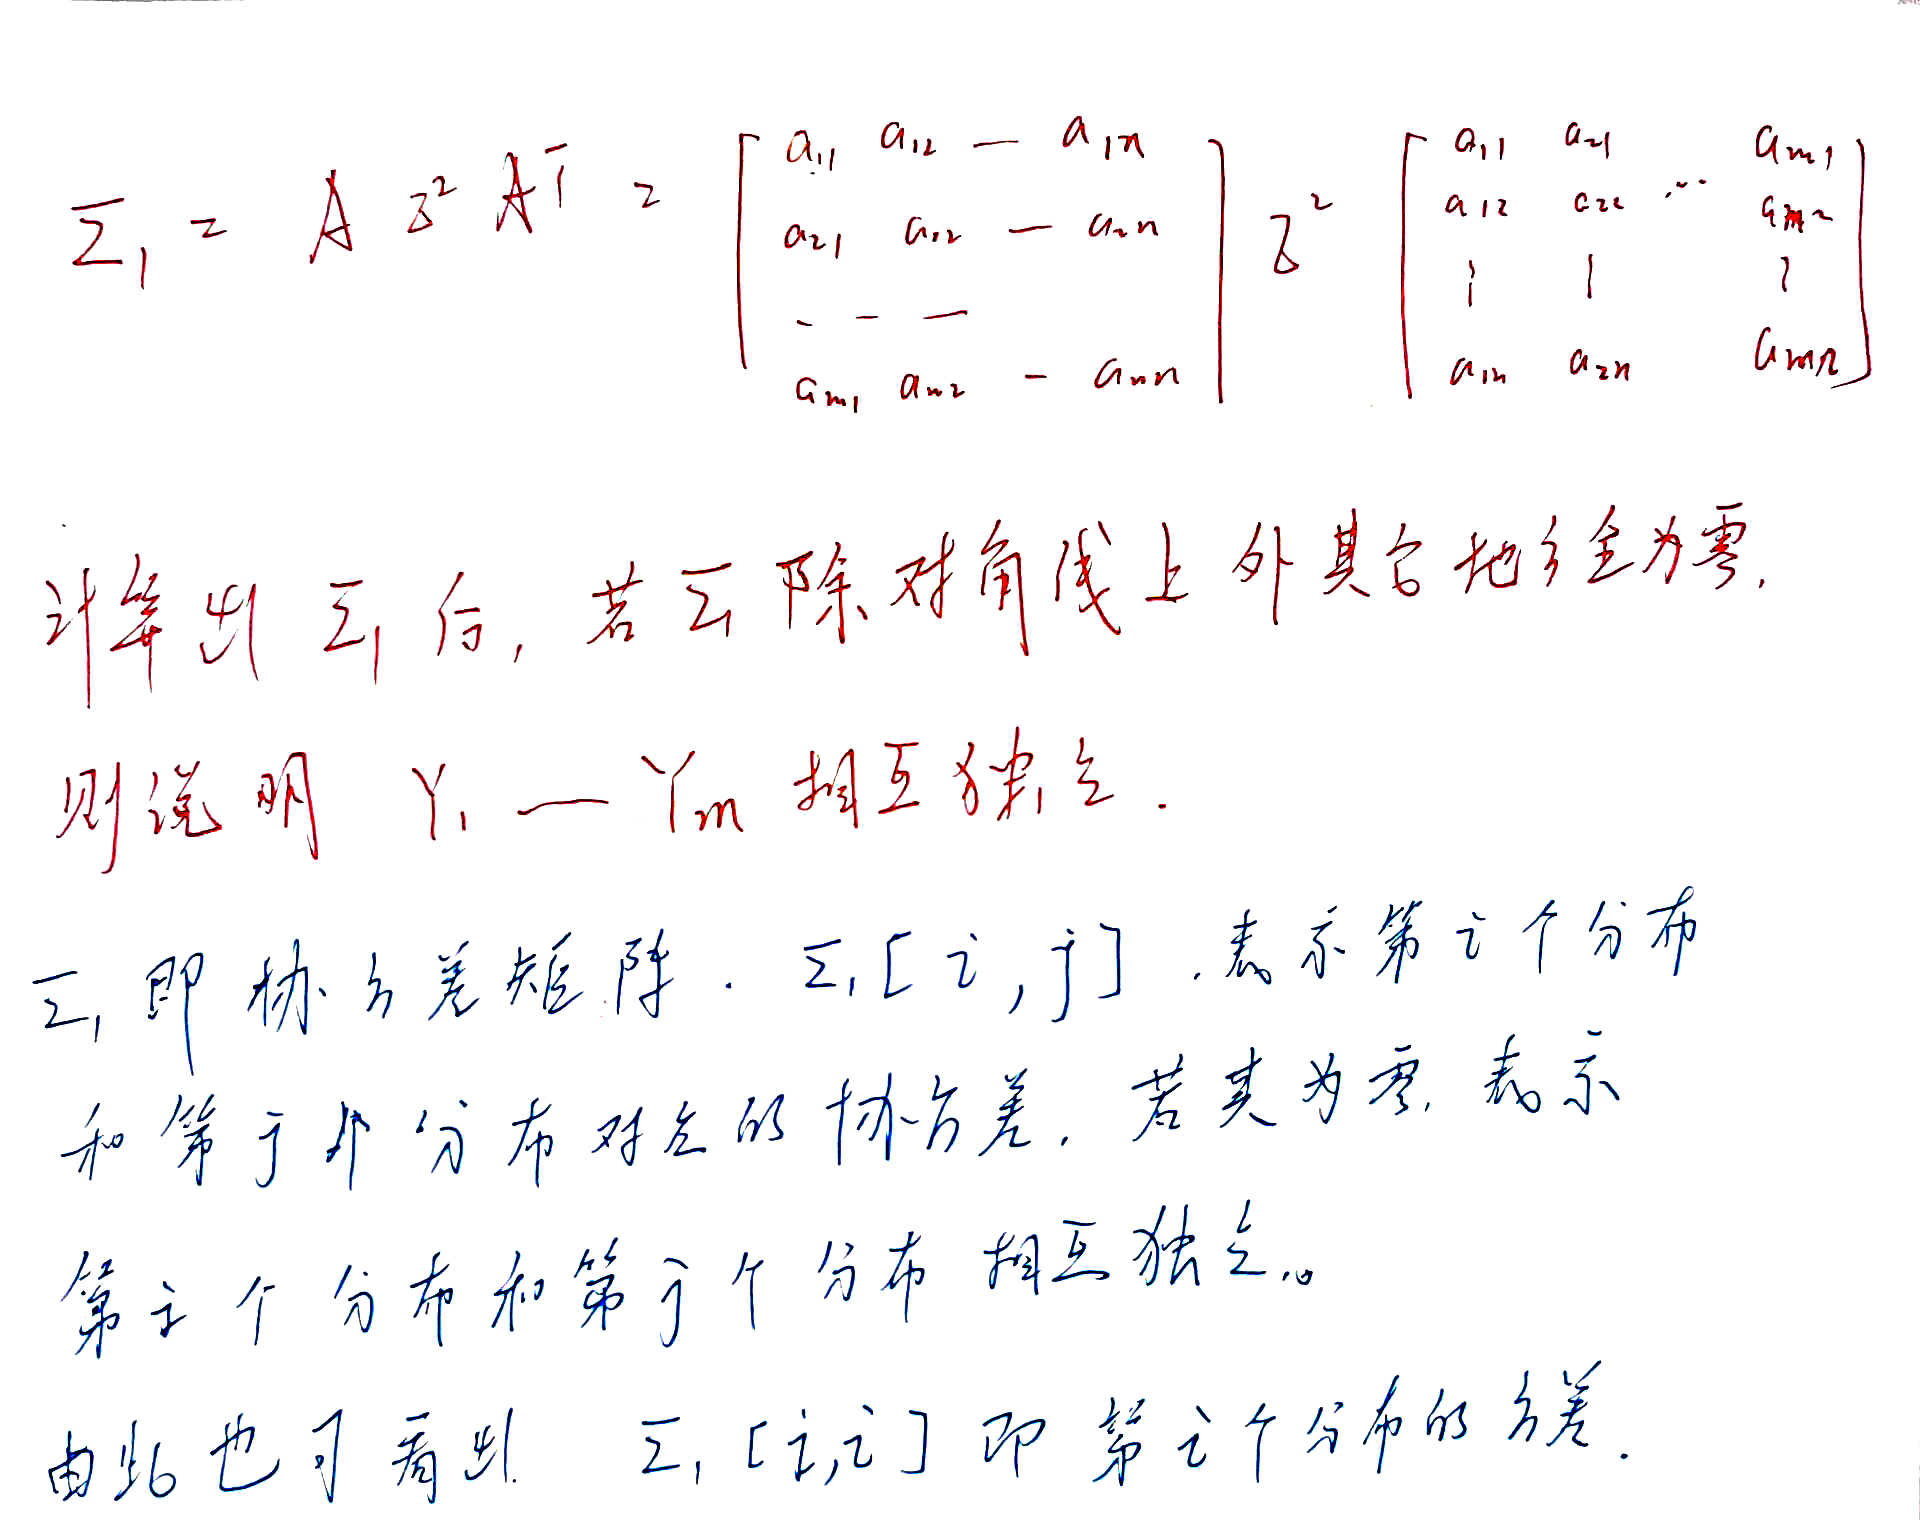 Σ₁ = A σ² Aᵀ = [ a₁₁ a₁₂ — a₁ₙ ; a₂₁ a₂₂ — a₂ₙ ; - - — ; aₘ₁ aₘ₂ - aₘₙ ] σ² [ a₁₁ a₂₁ aₘ₁ ; a₁₂ a₂₂ ... aₘ₂ ; ⋮ ⋮ ⋮ ; a₁ₙ a₂ₙ aₘₙ ]
计算出 Σ₁ 后, 若 Σ₁ 除对角线上外其它地方全为零,
则说明 Y₁ — Yₘ 相互独立.
Σ₁ 即协方差矩阵. Σ₁[i,j]. 表示第i个分布
和第j个分布对应的协方差. 若其为零, 表示
第i个分布和第j个分布相互独立。
由此也可看出 Σ₁[i,i] 即第i个分布的方差.